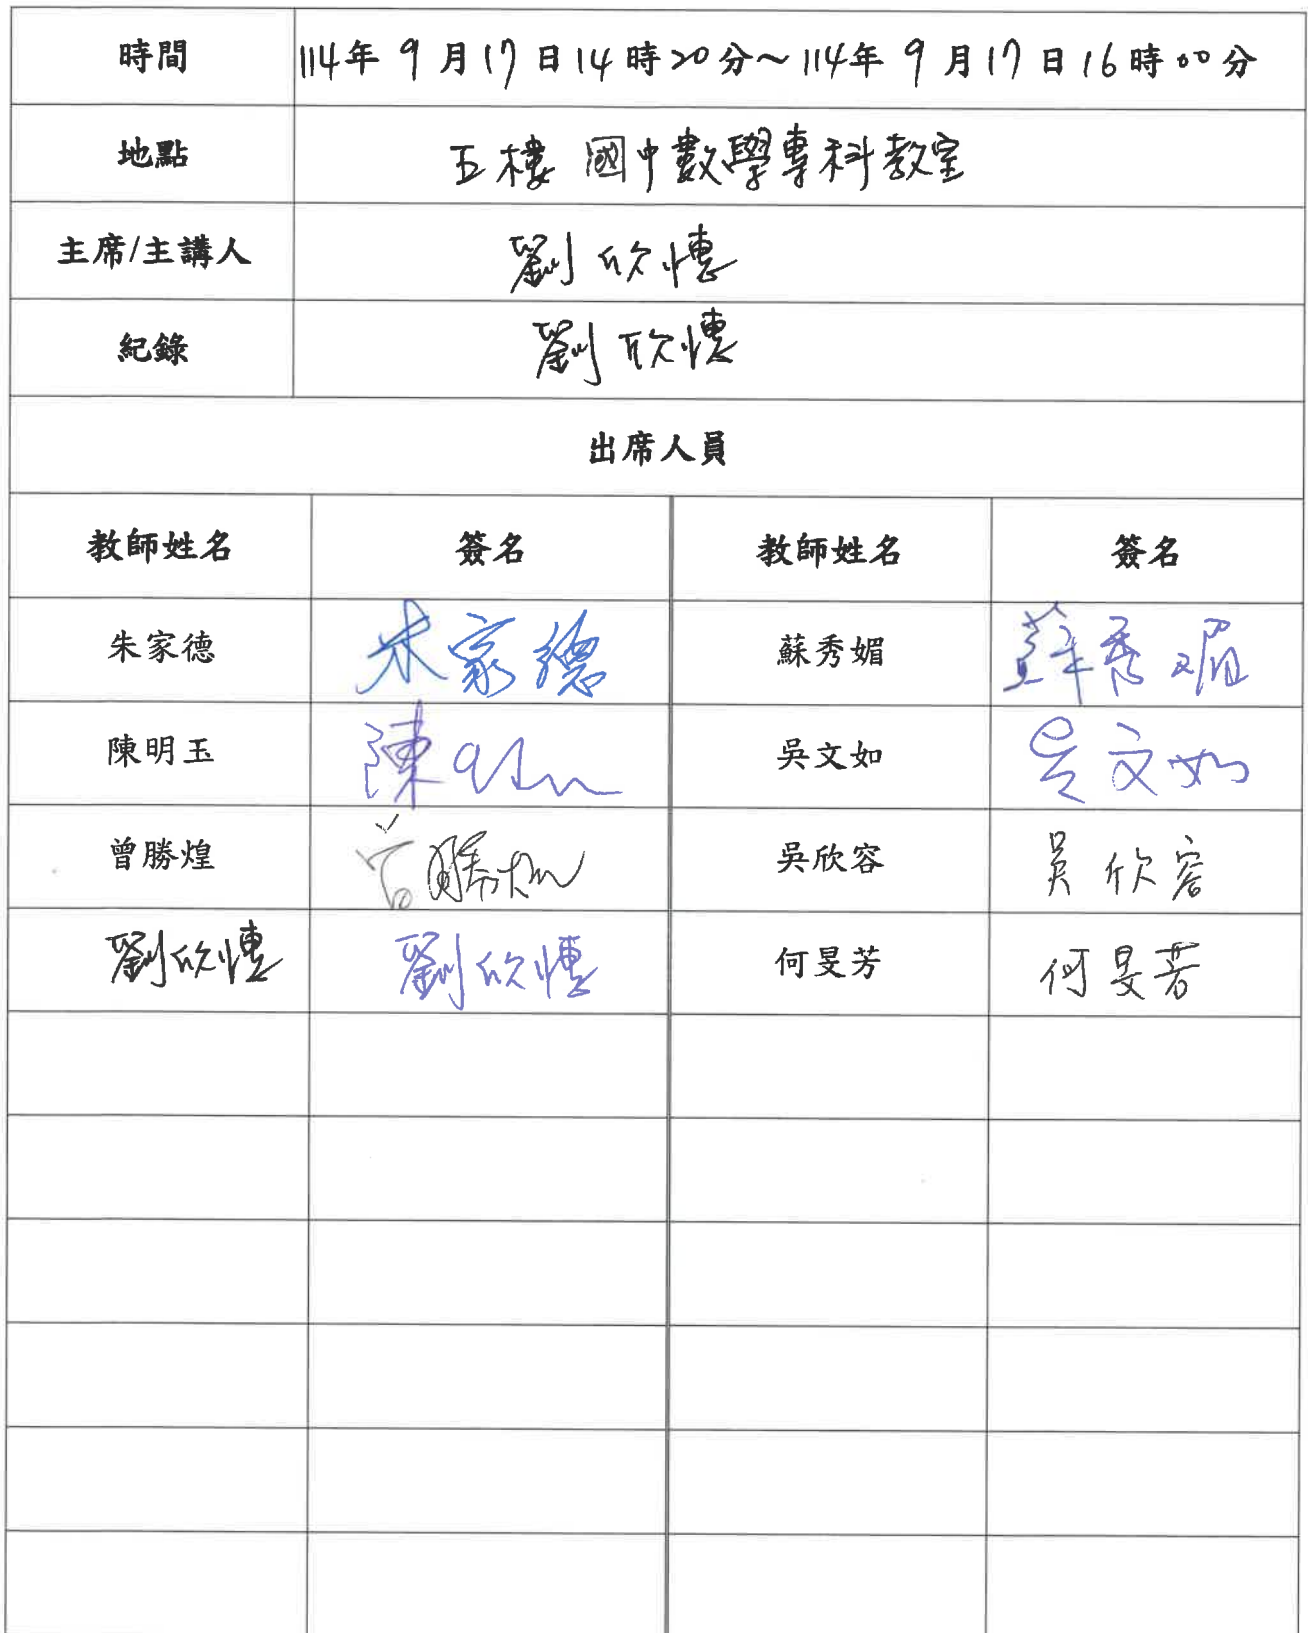 時間 114年 9 月 17 日 14 時 20 分～114年 9 月 17 日 16 時 00 分
地點 五樓 國中數學專科教室
主席/主講人 劉欣憓
紀錄 劉欣憓
出席人員
教師姓名 簽名 教師姓名 簽名
朱家德 朱家德 蘇秀媚 蘇秀媚
陳明玉 陳明玉 吳文如 吳文如
曾勝煌 曾勝煌 吳欣容 吳欣容
劉欣憓 劉欣憓 何旻芳 何旻芳